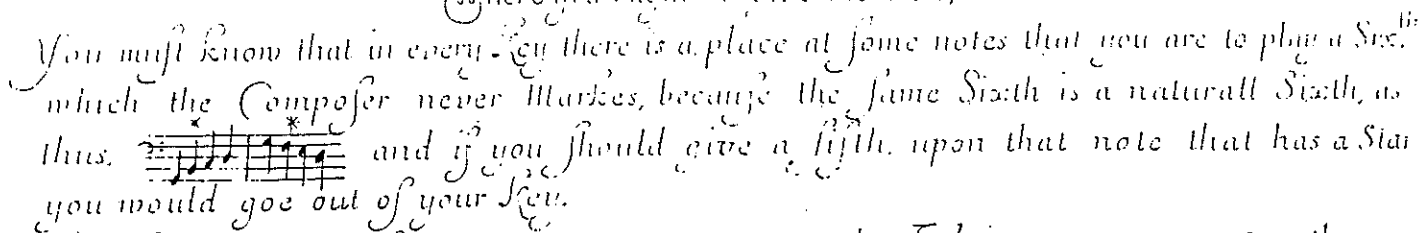 You muſt know that in every Key there is a place at ſome notes that you are to play a Six.th
which the Compoſer never Markes, becauſe the ſame Sixth is a naturall Sixth, as
thus. and if you ſhould give a fifth. upon that note that has a Star
you would goe out of your Key.